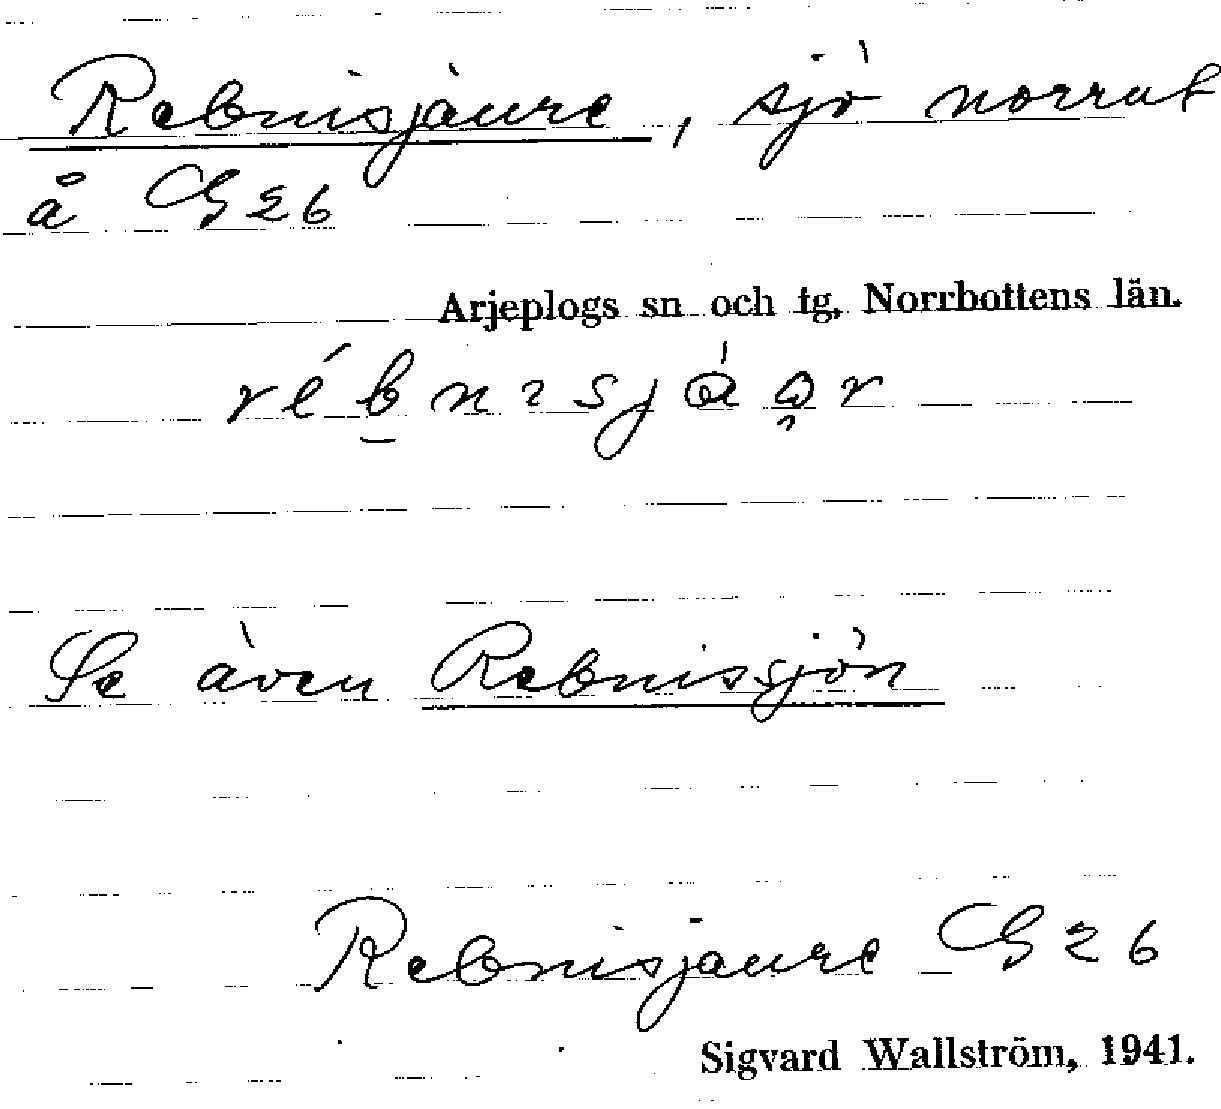 Rebnisjaure, sjö norrut
å G 26
Arjeplogs sn och tg, Norrbottens län.
Se även Rebnissjön
Rebnisjaure G 26
Sigvard Wallström, 1941.